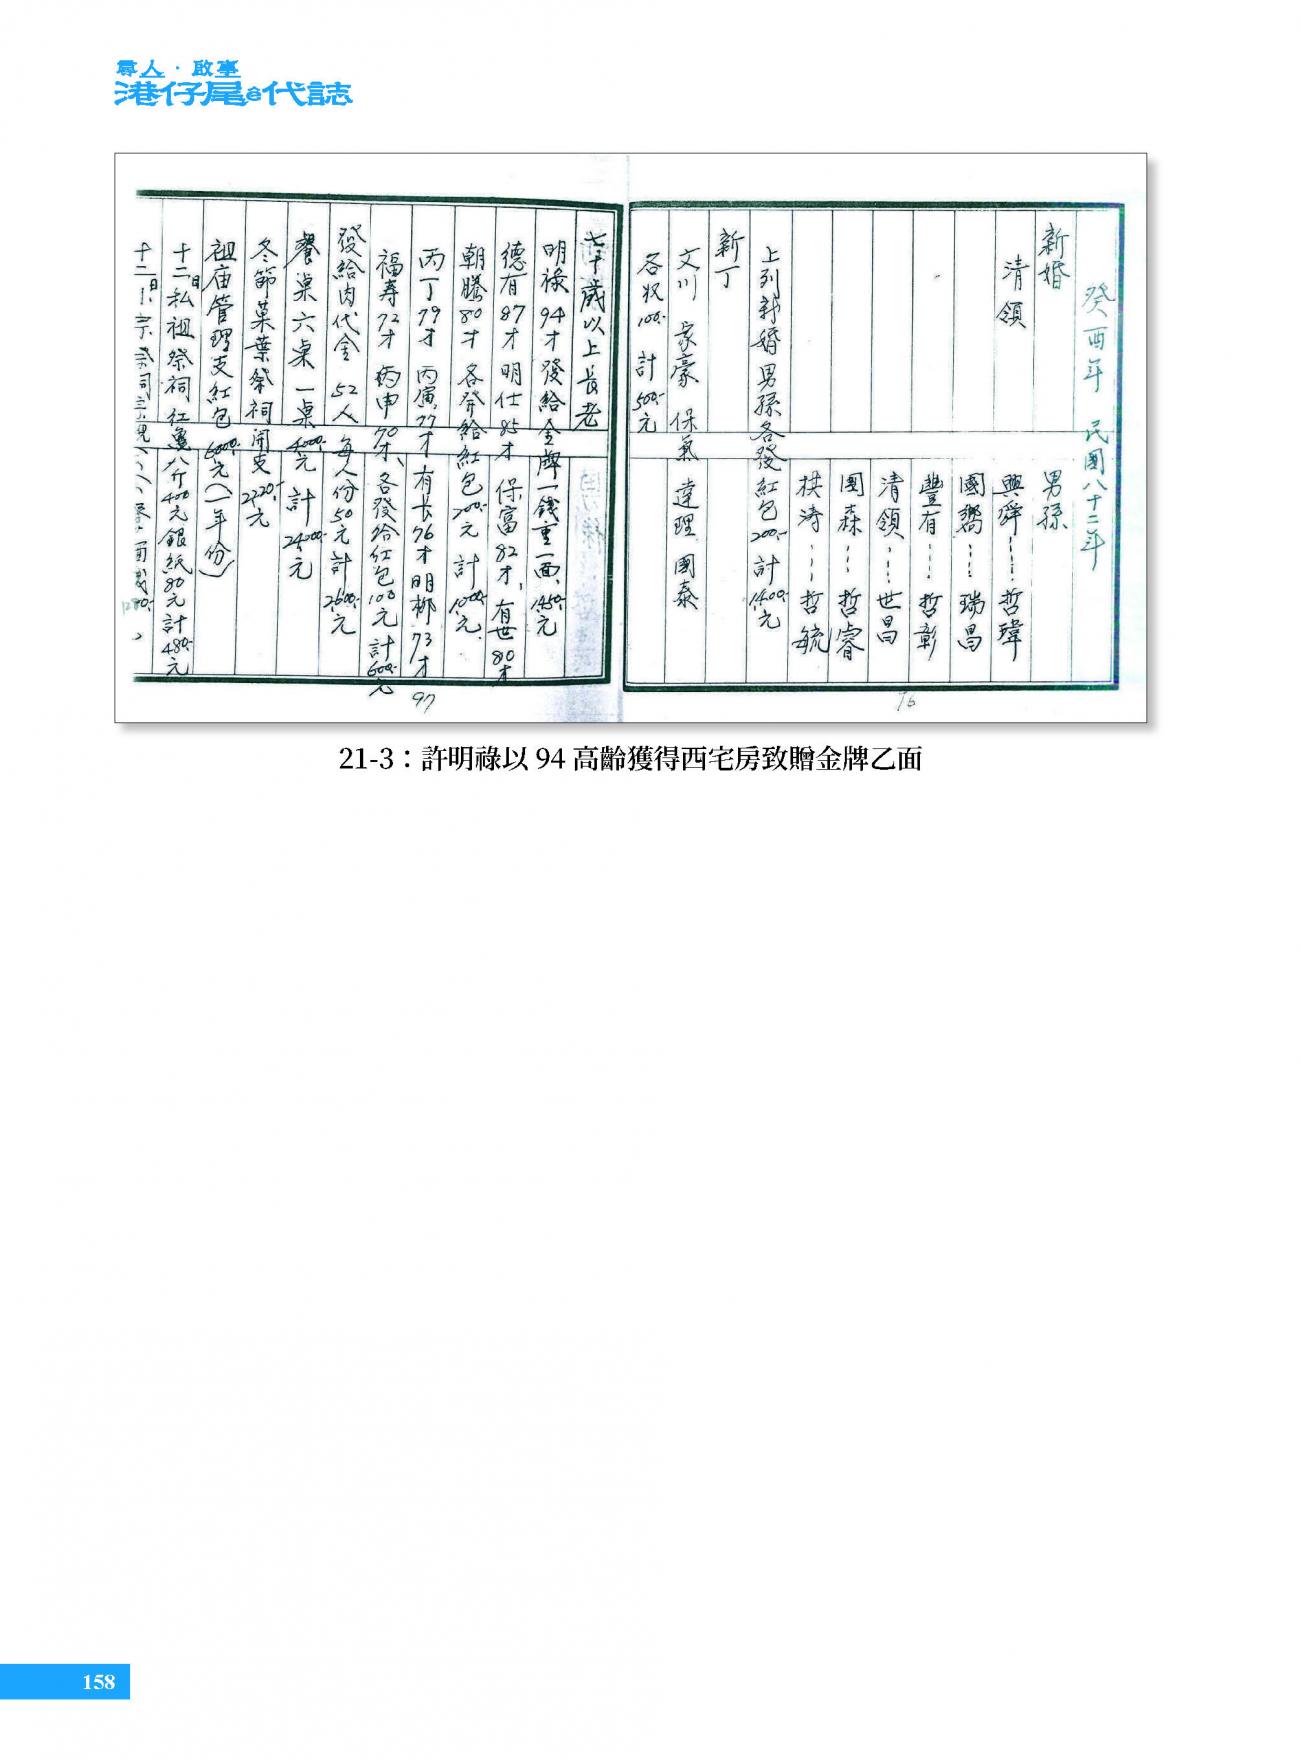 尋人・啟事
港仔尾ê代誌
癸酉年 民國八十二年
新婚 男孫
清領 興舜……哲瑋
國鷚……瑞昌
豐有……哲彰
清領……世昌
團森……哲睿
棋涛……哲毓
上列新婚男孫各發紅包200.-計1400.-元
新丁
文川 家豪 保氣 達理 國泰
各祝100.- 計500.-元
76
七十歲以上長老
明祿94才發給金牌一錢重一面、1450.-元
德有87才 明仕85才 保富82才、有世80才
朝騰80才 各發給紅包200.-元 計1000.-元
丙丁79才 丙寅77才 有长76才 明柳73才
福寿72才 丙申70才、各發給紅包100元計600.-元
發給肉代金 52人 每人份50元計2600.-元
餐桌六桌一桌4000.-元 計24000.-元
冬節菓葉祭祠開支2220.-元
祖庙管理支紅包6000.-元(一年份)
十二日私祖祭祠紅龜八斤400元銀紙80元計480.-元
97
21-3：許明祿以 94 高齡獲得西宅房致贈金牌乙面
158